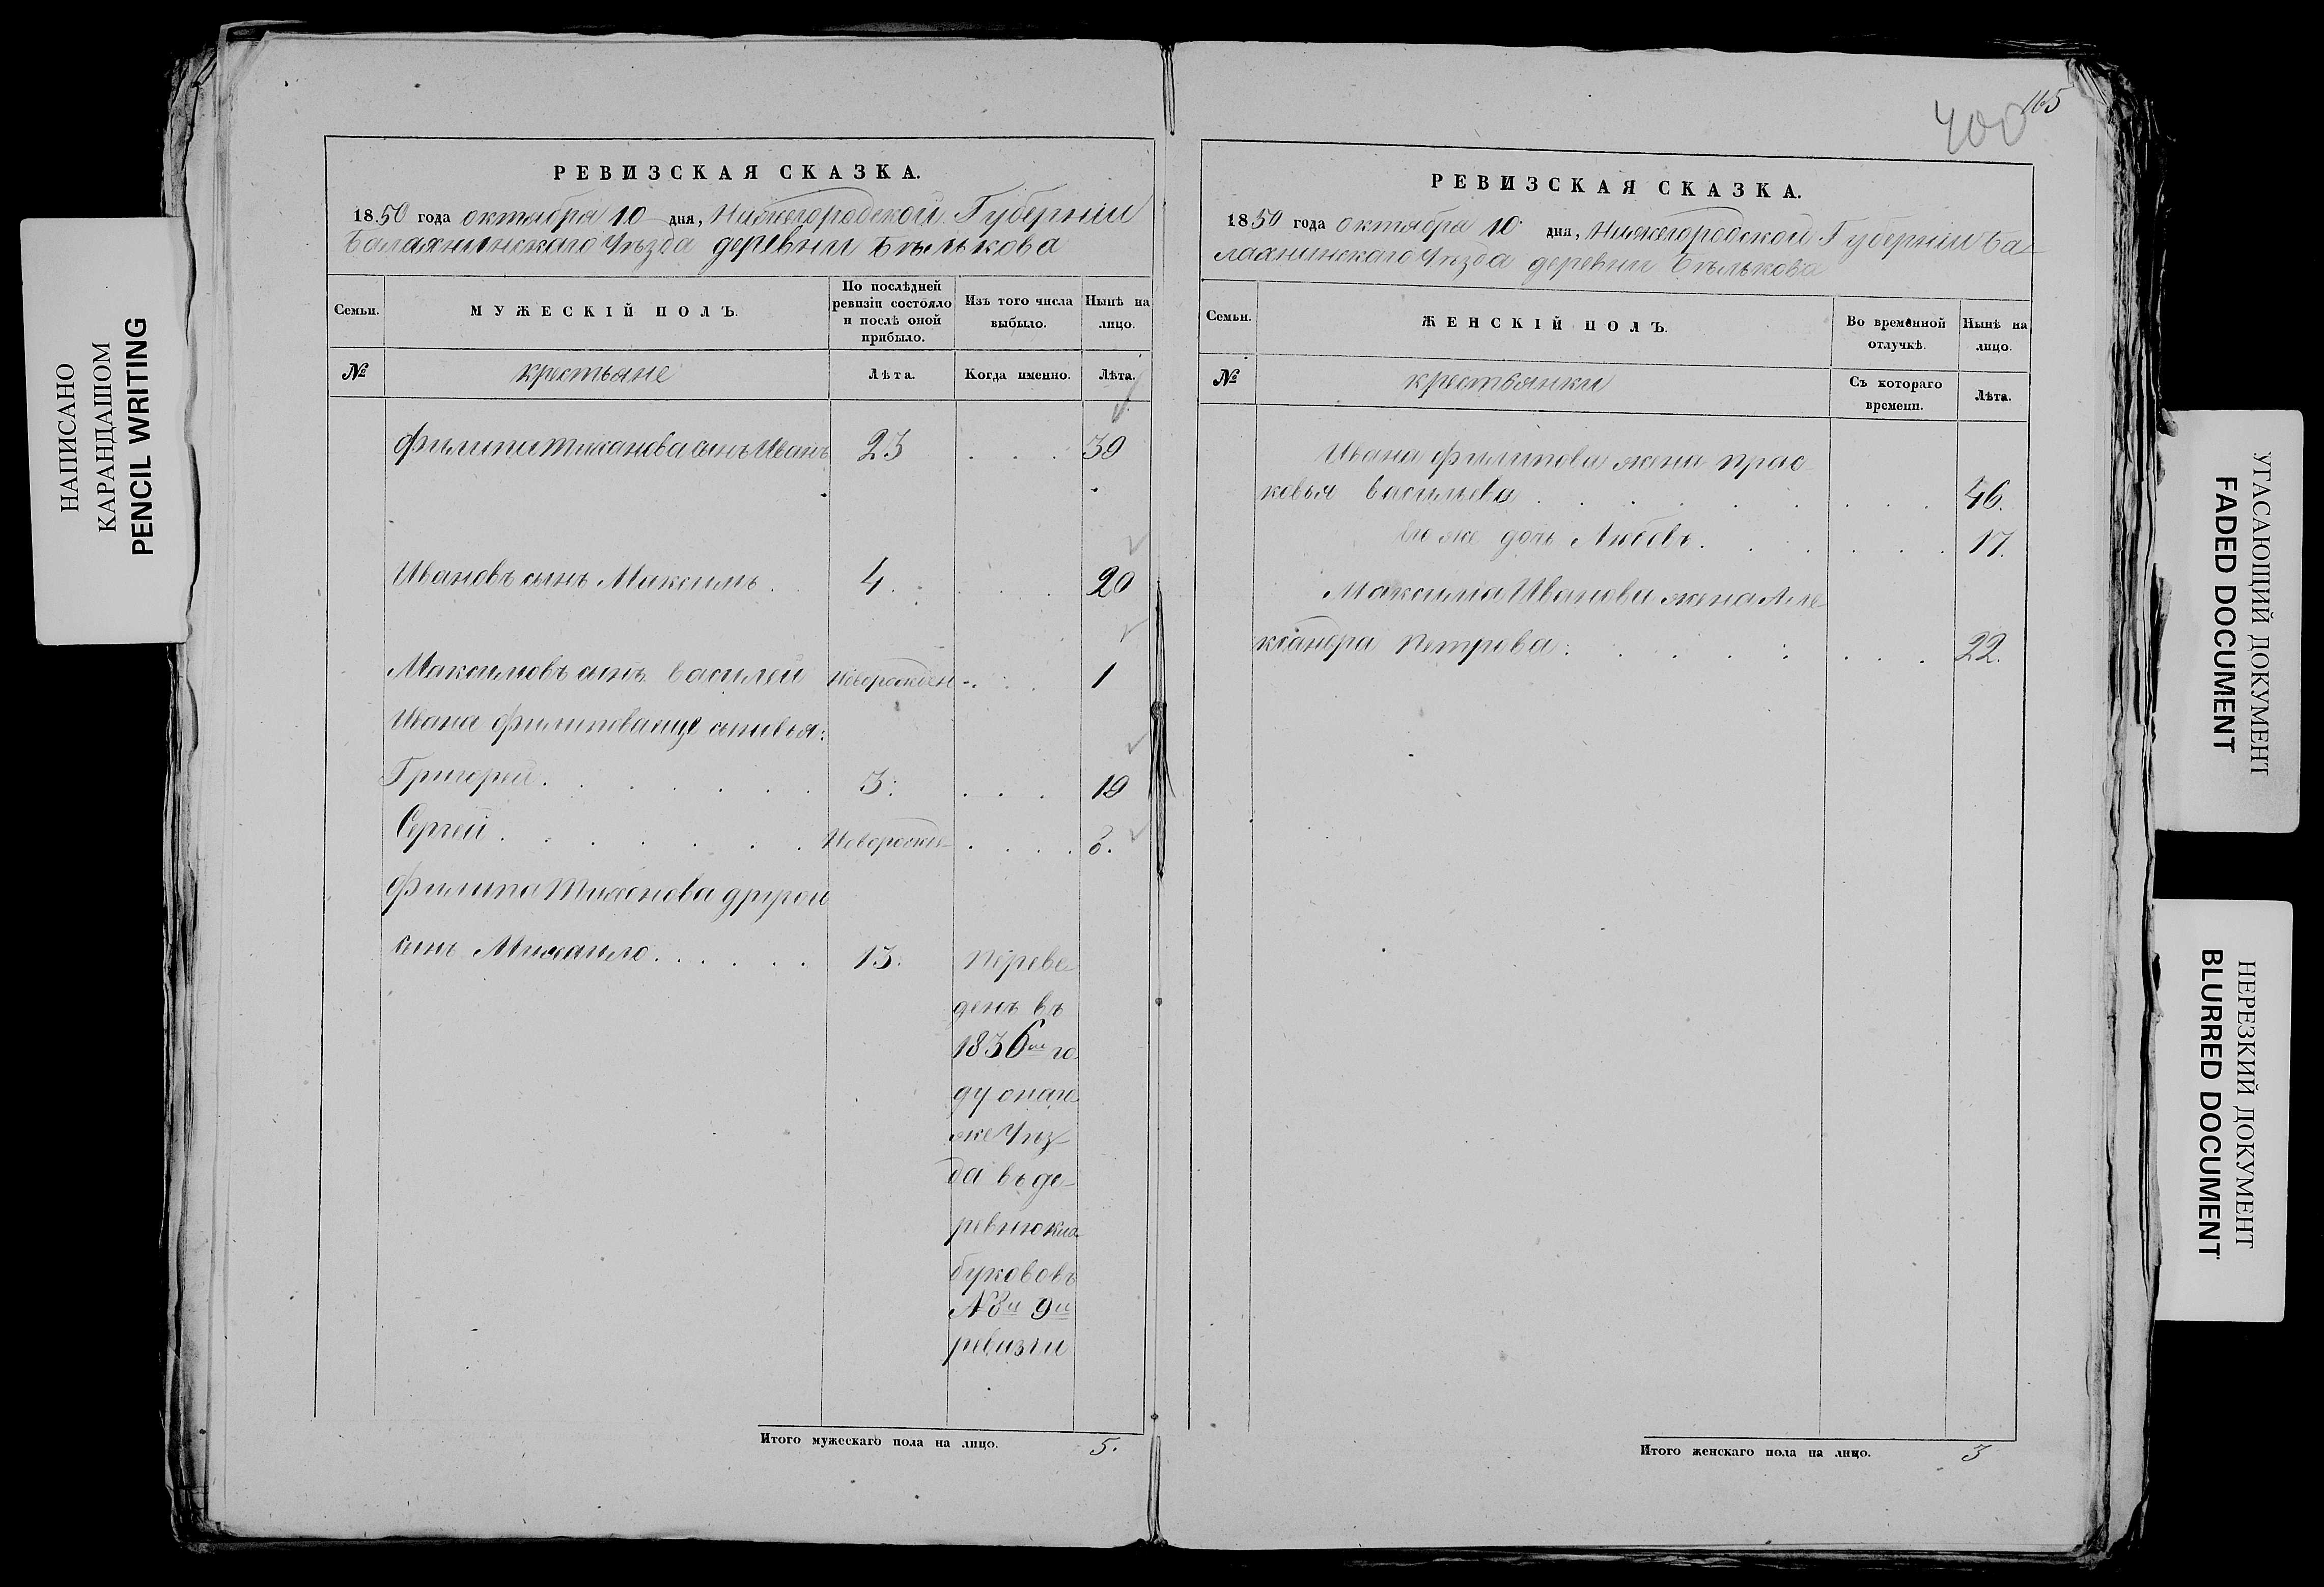 НАПИСАНО
КАРАНДАШОМ
PENCIL WRITING
РЕВИЗСКАЯ СКАЗКА.
1850 года октября 10 дня, Нижегородской Губерніи
Балахнинскаго Уѣзда деревни Бѣлькова
Семьи.
МУЖЕСКІЙ ПОЛЪ.
По послѣдней
ревизіи состояло
и послѣ оной
прибыло.
Изъ того числа
выбыло.
Нынѣ на
лицо.
№
крестьяне
Лѣта.
Когда именно.
Лѣта.
Филипа Тиханова сынъ Иванъ 23 . . . 39
Ивановъ сынъ Максимъ . 4 . . . . 20
Максимовъ сынъ Василей Новорожден . . . 1
Ивана Филипова еще сыновья:
Григорей . . . . . . . 3. . . . 19
Сергей . . . . . . . Новорожде . . . . 3.
Филипа Тихонова другой
сынъ Михаило . . . . . . 13. переве
денъ въ
1836м го
ду онаго
же Уѣз
да въ де-
ревню
ревизіи
Итого мужескаго пола на лицо. 5.
400
165
РЕВИЗСКАЯ СКАЗКА.
1850 года октября 10 дня, Нижегородской Губерніи Ба
лахнинскаго Уѣзда деревни Бѣлькова
Семьи.
ЖЕНСКІЙ ПОЛЪ.
Во временной
отлучкѣ.
Нынѣ на
лицо.
№
крестьянки
Съ котораго
времени.
Лѣта.
Ивана Филипова жена прас
ковья Васильева . . . . . . . . . 46.
его же дочь Любовь . . . . . . . 17.
Максима Иванова жена Але
ксандра Петрова . . . . . . . . 22.
Итого женскаго пола на лицо. 3
УГАСАЮЩИЙ ДОКУМЕНТ
FADED DOCUMENT
НЕРЕЗКИЙ ДОКУМЕНТ
BLURRED DOCUMENT